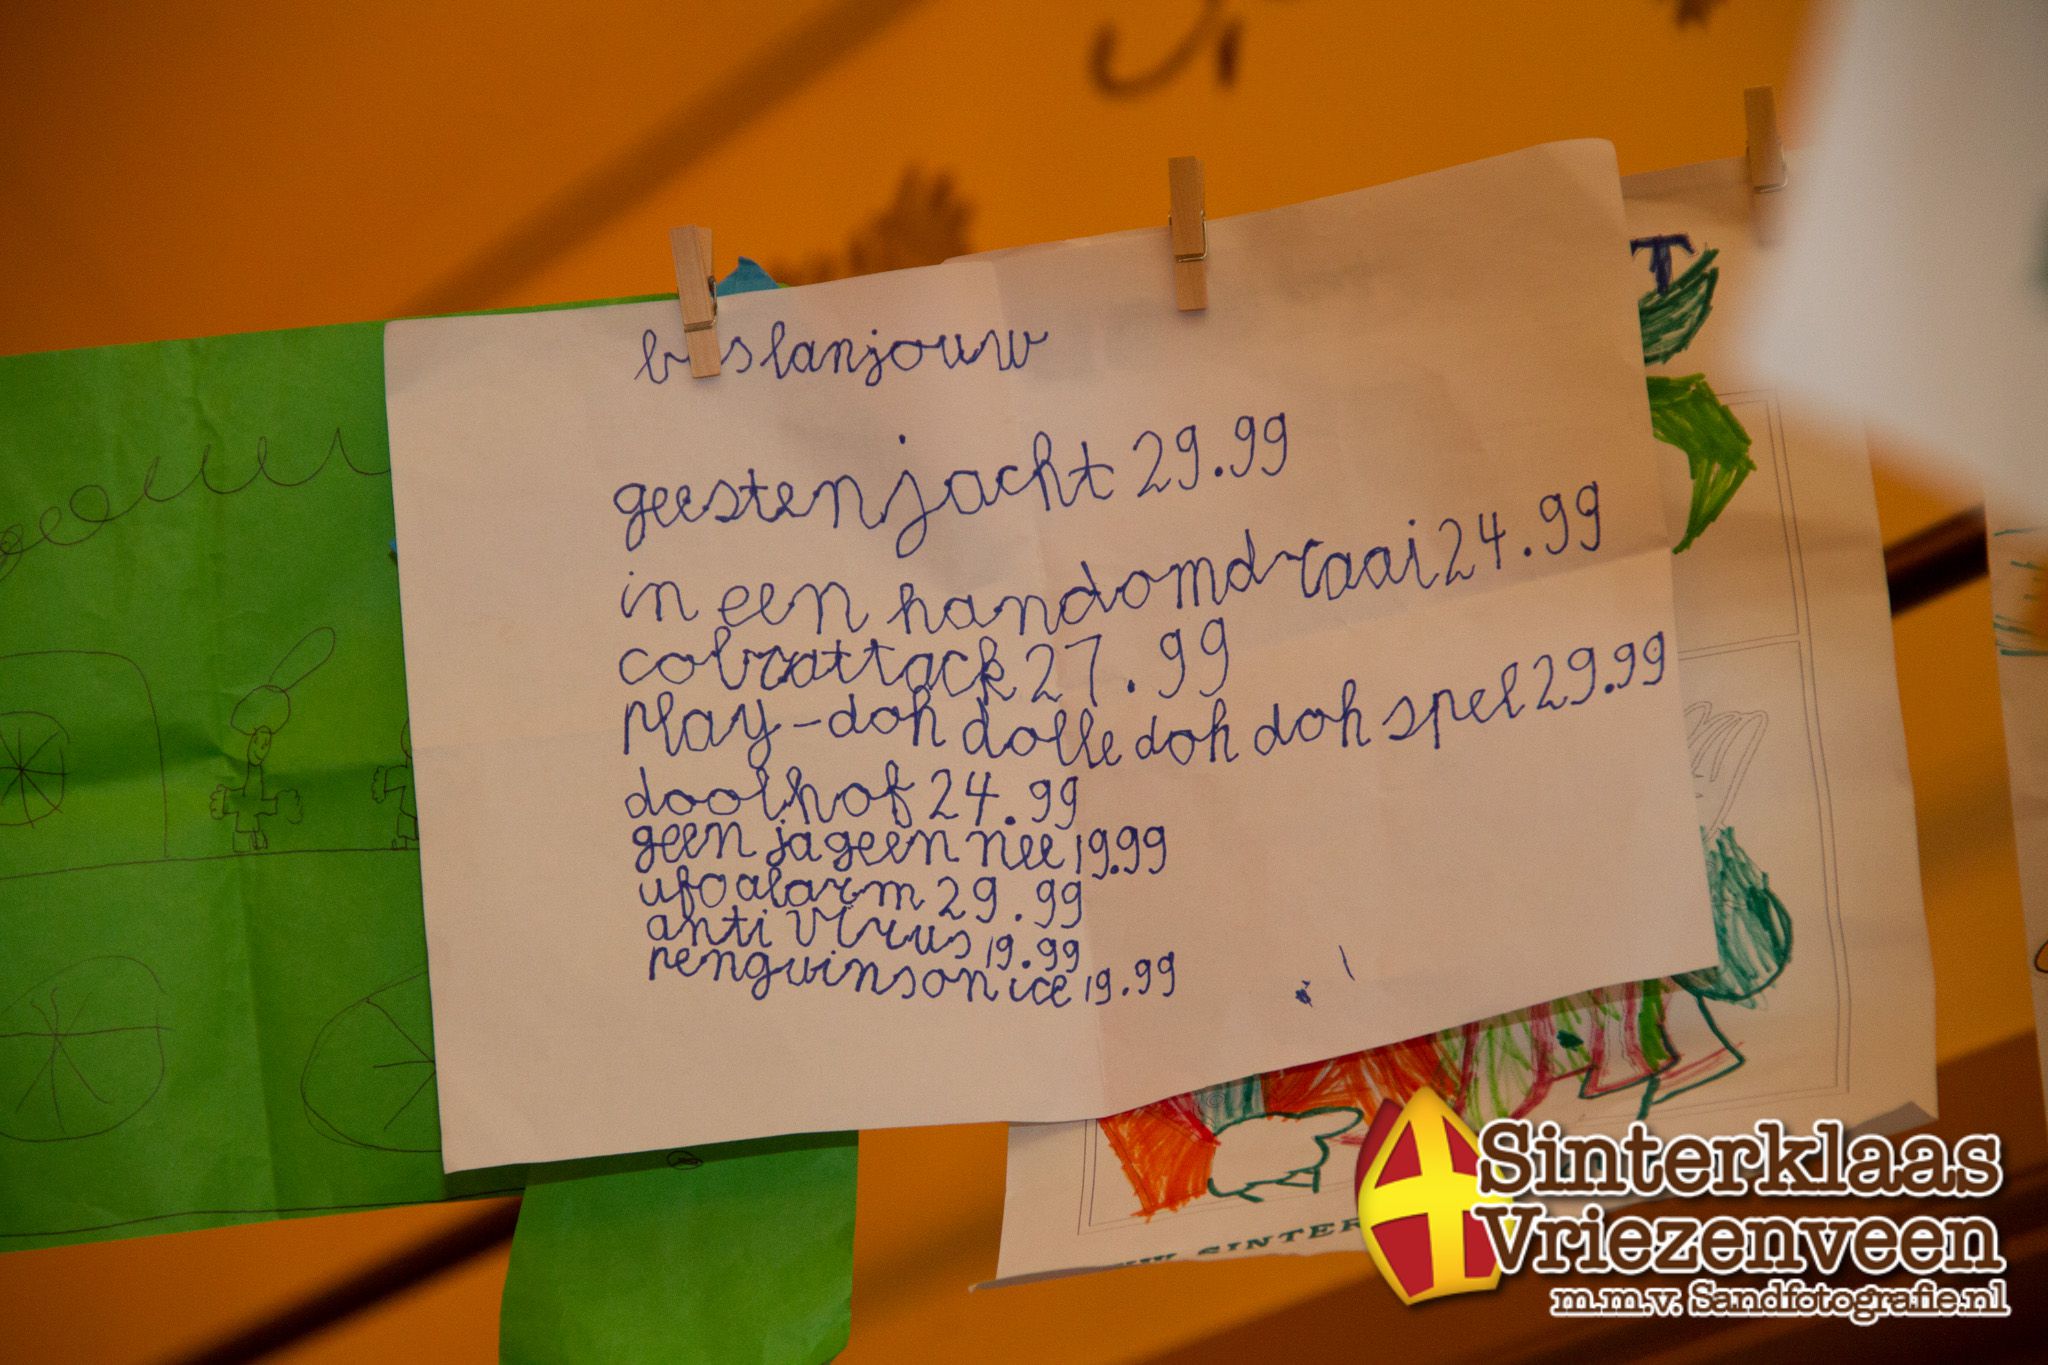 geestenjacht 29.99
in een handomdraai 24.99
cobrattack 27.99
Play-doh dolle doh doh spel 29.99
doolhof 24.99
geen ja geen nee 19.99
ufo alarm 29.99
anti Virus 19.99
penguins on ice 19.99
T
Sinterklaas
Vriezenveen
m.m.v. Sandfotografie.nl